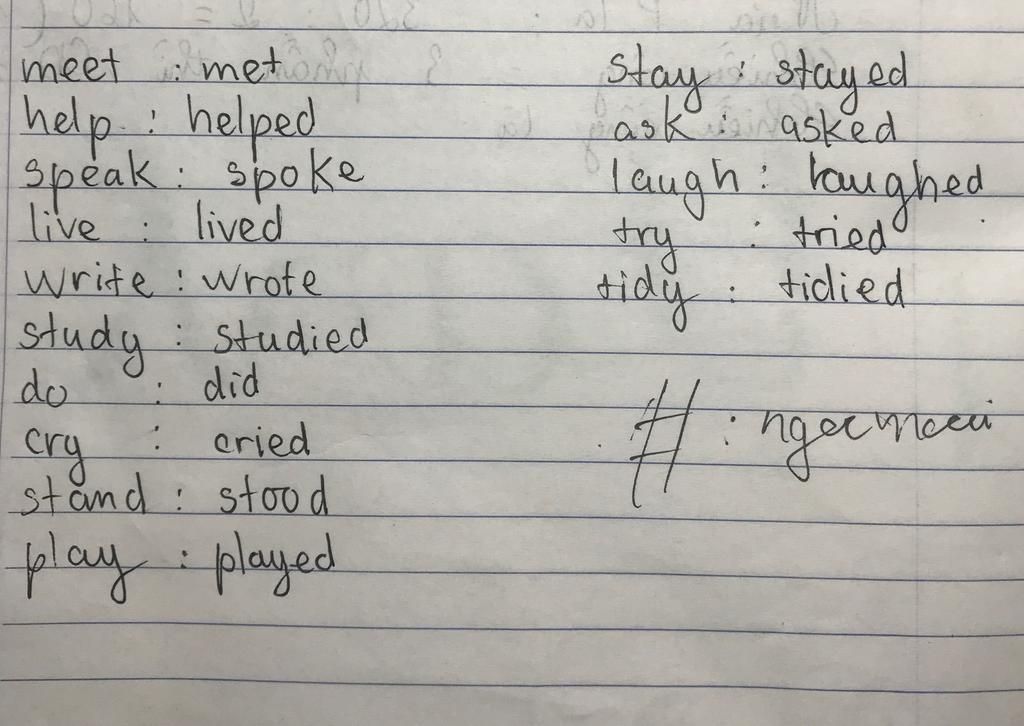 meet : met
help : helped
speak : spoke
live : lived
write : wrote
study : studied
do : did
cry : cried
stand : stood
play : played
stay : stayed
ask : asked
laugh : laughed
try : tried
tidy : tidied
# :